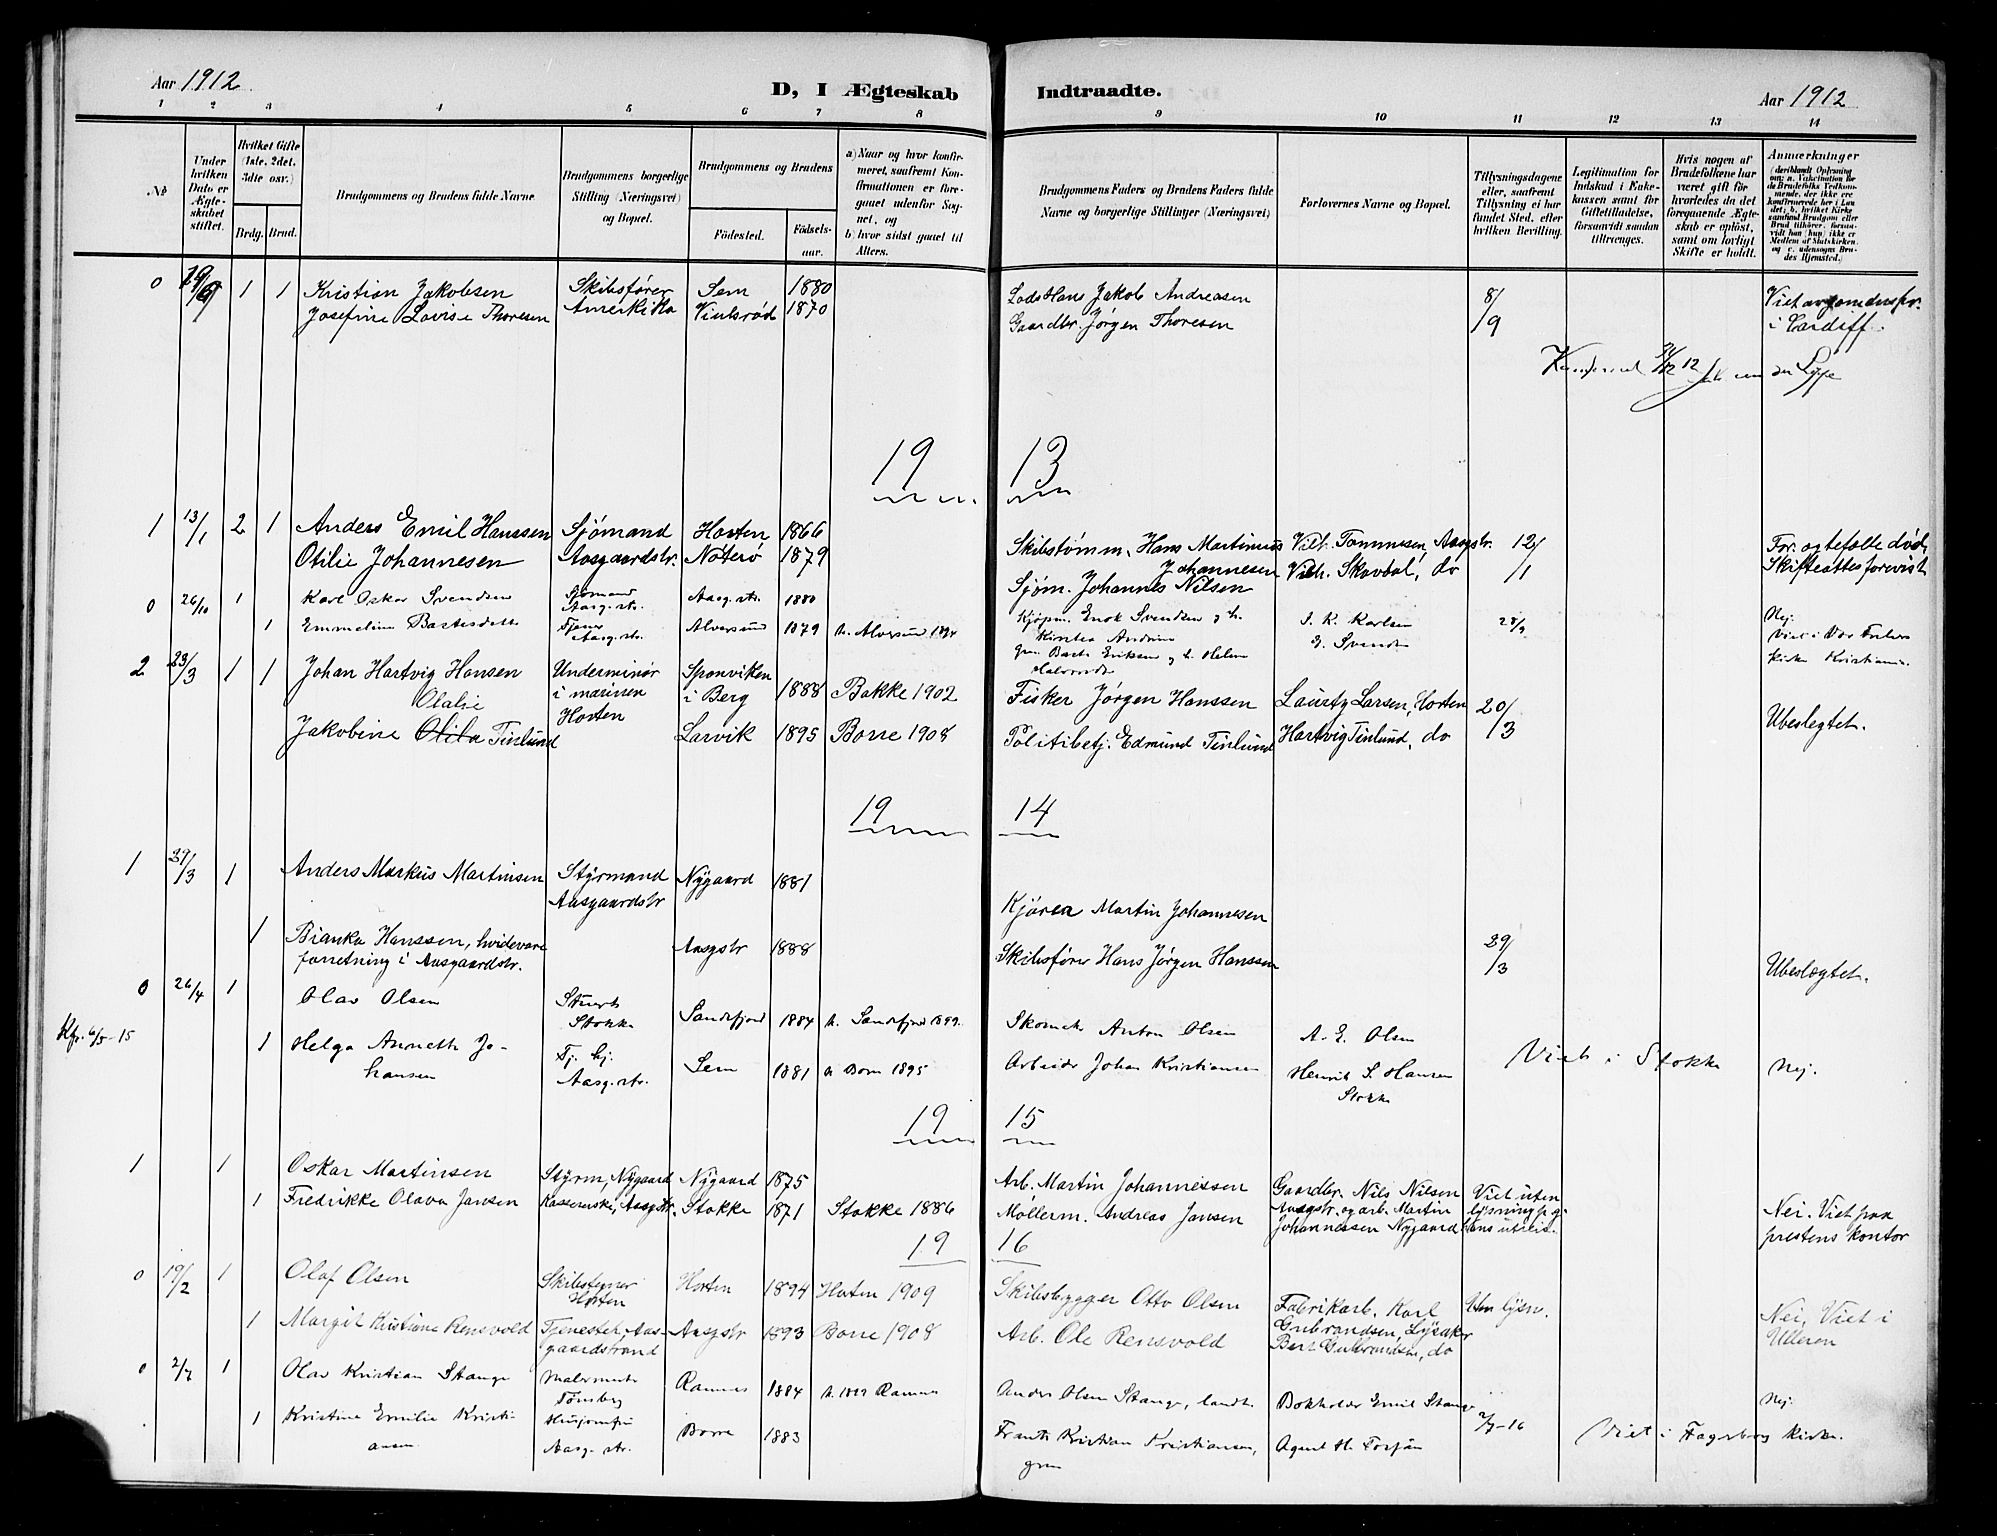 Aar 1912
D, I Ægteskab
Indtraadte.
Aar 1912
1 2 3 4 5 6 7 8 9 10 11 12 13 14
No
Under hvilken Dato er Ægteskabet stiftet.
Hvilket Gifte (1ste, 2det, 3die osv.)
Brdg. Brud.
Brudgommens og Brudens fulde Navne
Brudgommens borgerlige Stilling (Næringsvei) og Bopæl.
Brudgommens og Brudens
Födested.
Födselsaar.
a) Naar og hvor konfirmeret, saafremt Konfirmationen er foregaaet udenfor Sognet, og
b) hvor sidst gaaet til Alters.
Brudgommens Faders og Brudens Faders fulde Navne og borgerlige Stillinger (Næringsvei)
Forlovernes Navne og Bopæl.
Tillysningsdagene eller, saafremt Tillysning ei har fundet Sted, efter hvilken Bevilling.
Legitimation for Indskud i Enkekassen samt for Giftetilladelse, forsaavidt saadan tiltrænges.
Hvis nogen af Brudefolkene har været gift før hvorledes da det foregaaende Ægteskab er opløst, samt om lovligt Skifte er holdt.
Anmærkninger
0 1 1 Kristian Jakobsen Skibsfører Sem 1880 Lods Hans Jakob Andreasen 8/9
Josefine Lovise Thoresen Amerikika 1870 Gaardbr. Jørgen Thoresen i Cardiff.
31/12 12
19 13
1 13/1 2 1 Anders Emil Hanssen Sjømand Horten 1866 Skibstømm. Hans Martinius Johannesen Vilh. Tommesen, Aasgstr. 12/1 For. egtefælle død.
Otilie Johannesen Aasgaardstr. Nøterø 1879 Sjøm. Johannes Nilsen Vilh. Skovdal, do Skifteattest forevist
0 26/10 1 Karl Oskar Svendsen Sjømand Aasg.str. Aasg. str. 1880 Kjøpm. Enok Svendsen og h. J. K. Karlsen 28/9 Nej.
1 Emmeline Aasg.str. Alversund 1879 h. Alversund 1894 Viet i Vor Frelsers kirke Kristiania.
2 23/3 1 1 Johan Hartvig Hansen Underminør i marinen Horten Sponviken i Berg 1888 Bakke 1902 Fisker Jørgen Hanssen Lauritz Larsen, Horten 20/3 Ubeslegtet.
Olalie
Jakobine Olila Tinlund Larvik 1895 Borre 1908 Politibetj. Edmund Tinlund Hartvig Tinlund, do
19 14
1 29/3 1 Anders Markus Martinsen Styrmand Aasgaardstr Nygaard 1881 Kjører Martin Johannesen
1 Bianka Hanssen, hvidevareforretning i Aasgaardstr. Aasgstr 1888 Skibsfører Hans Jørgen Hanssen 29/3 Ubeslegtet.
0 26/4 1 Olav Olsen Stuert Stokke Sandefjord 1884 h. Sandefjord 1899. Anton Olsen A. E. Olsen
Kfr. 6/5-15 1 Helga Annette Johansen Tj. hj. Aasg. str. Sem 1881 a Borre 1895 Arbeider Johan Kristiansen Henrik S. Hansen Stokke Viet i Stokke Nej.
19 15
1 1 Oskar Martinsen Styrm, Nygaard Nygaard 1875 Arb. Martin Johannessen Gaardbr. Nils Nilsen Aasgstr. og arb. Martin Johannessen Nygaard Viet uten lysning Nei. Viet paa prestens kontor
1 Fredrikke Olava Jansen Aasgstr. Stokke 1871 Stokke 1886 Møllerm. Andreas Jansen
19 16
0 19/2 1 Olaf Olsen Skibstegner Horten Horten 1894 Horten 1909 Skibsbygger Otto Olsen Fabrikarb. Karl Gubrandsen, Lysaker Uten lysn. Nei, Viet i Ulleren
1 Margit Kristiane Rensvold Tjenestek, Aasgaardstrand Aasgstr 1893 Borre 1908 Arb. Ole Rensvold Bert Gulbrandsen, do
0 2/7 1 Olav Kristian Stange Malermester Tønsberg Ramnes 1884 Ramnes Anders Olsen Stange, landh. Bokholder Emil Stange 2/7-16 Nej.
1 Kristine Emilie Kristiansen Husjomfru Aasg. str. Borre 1883 Frants Kristian Kristiansen, Agent H. Torjøn Viet i Fagerborg kirke.